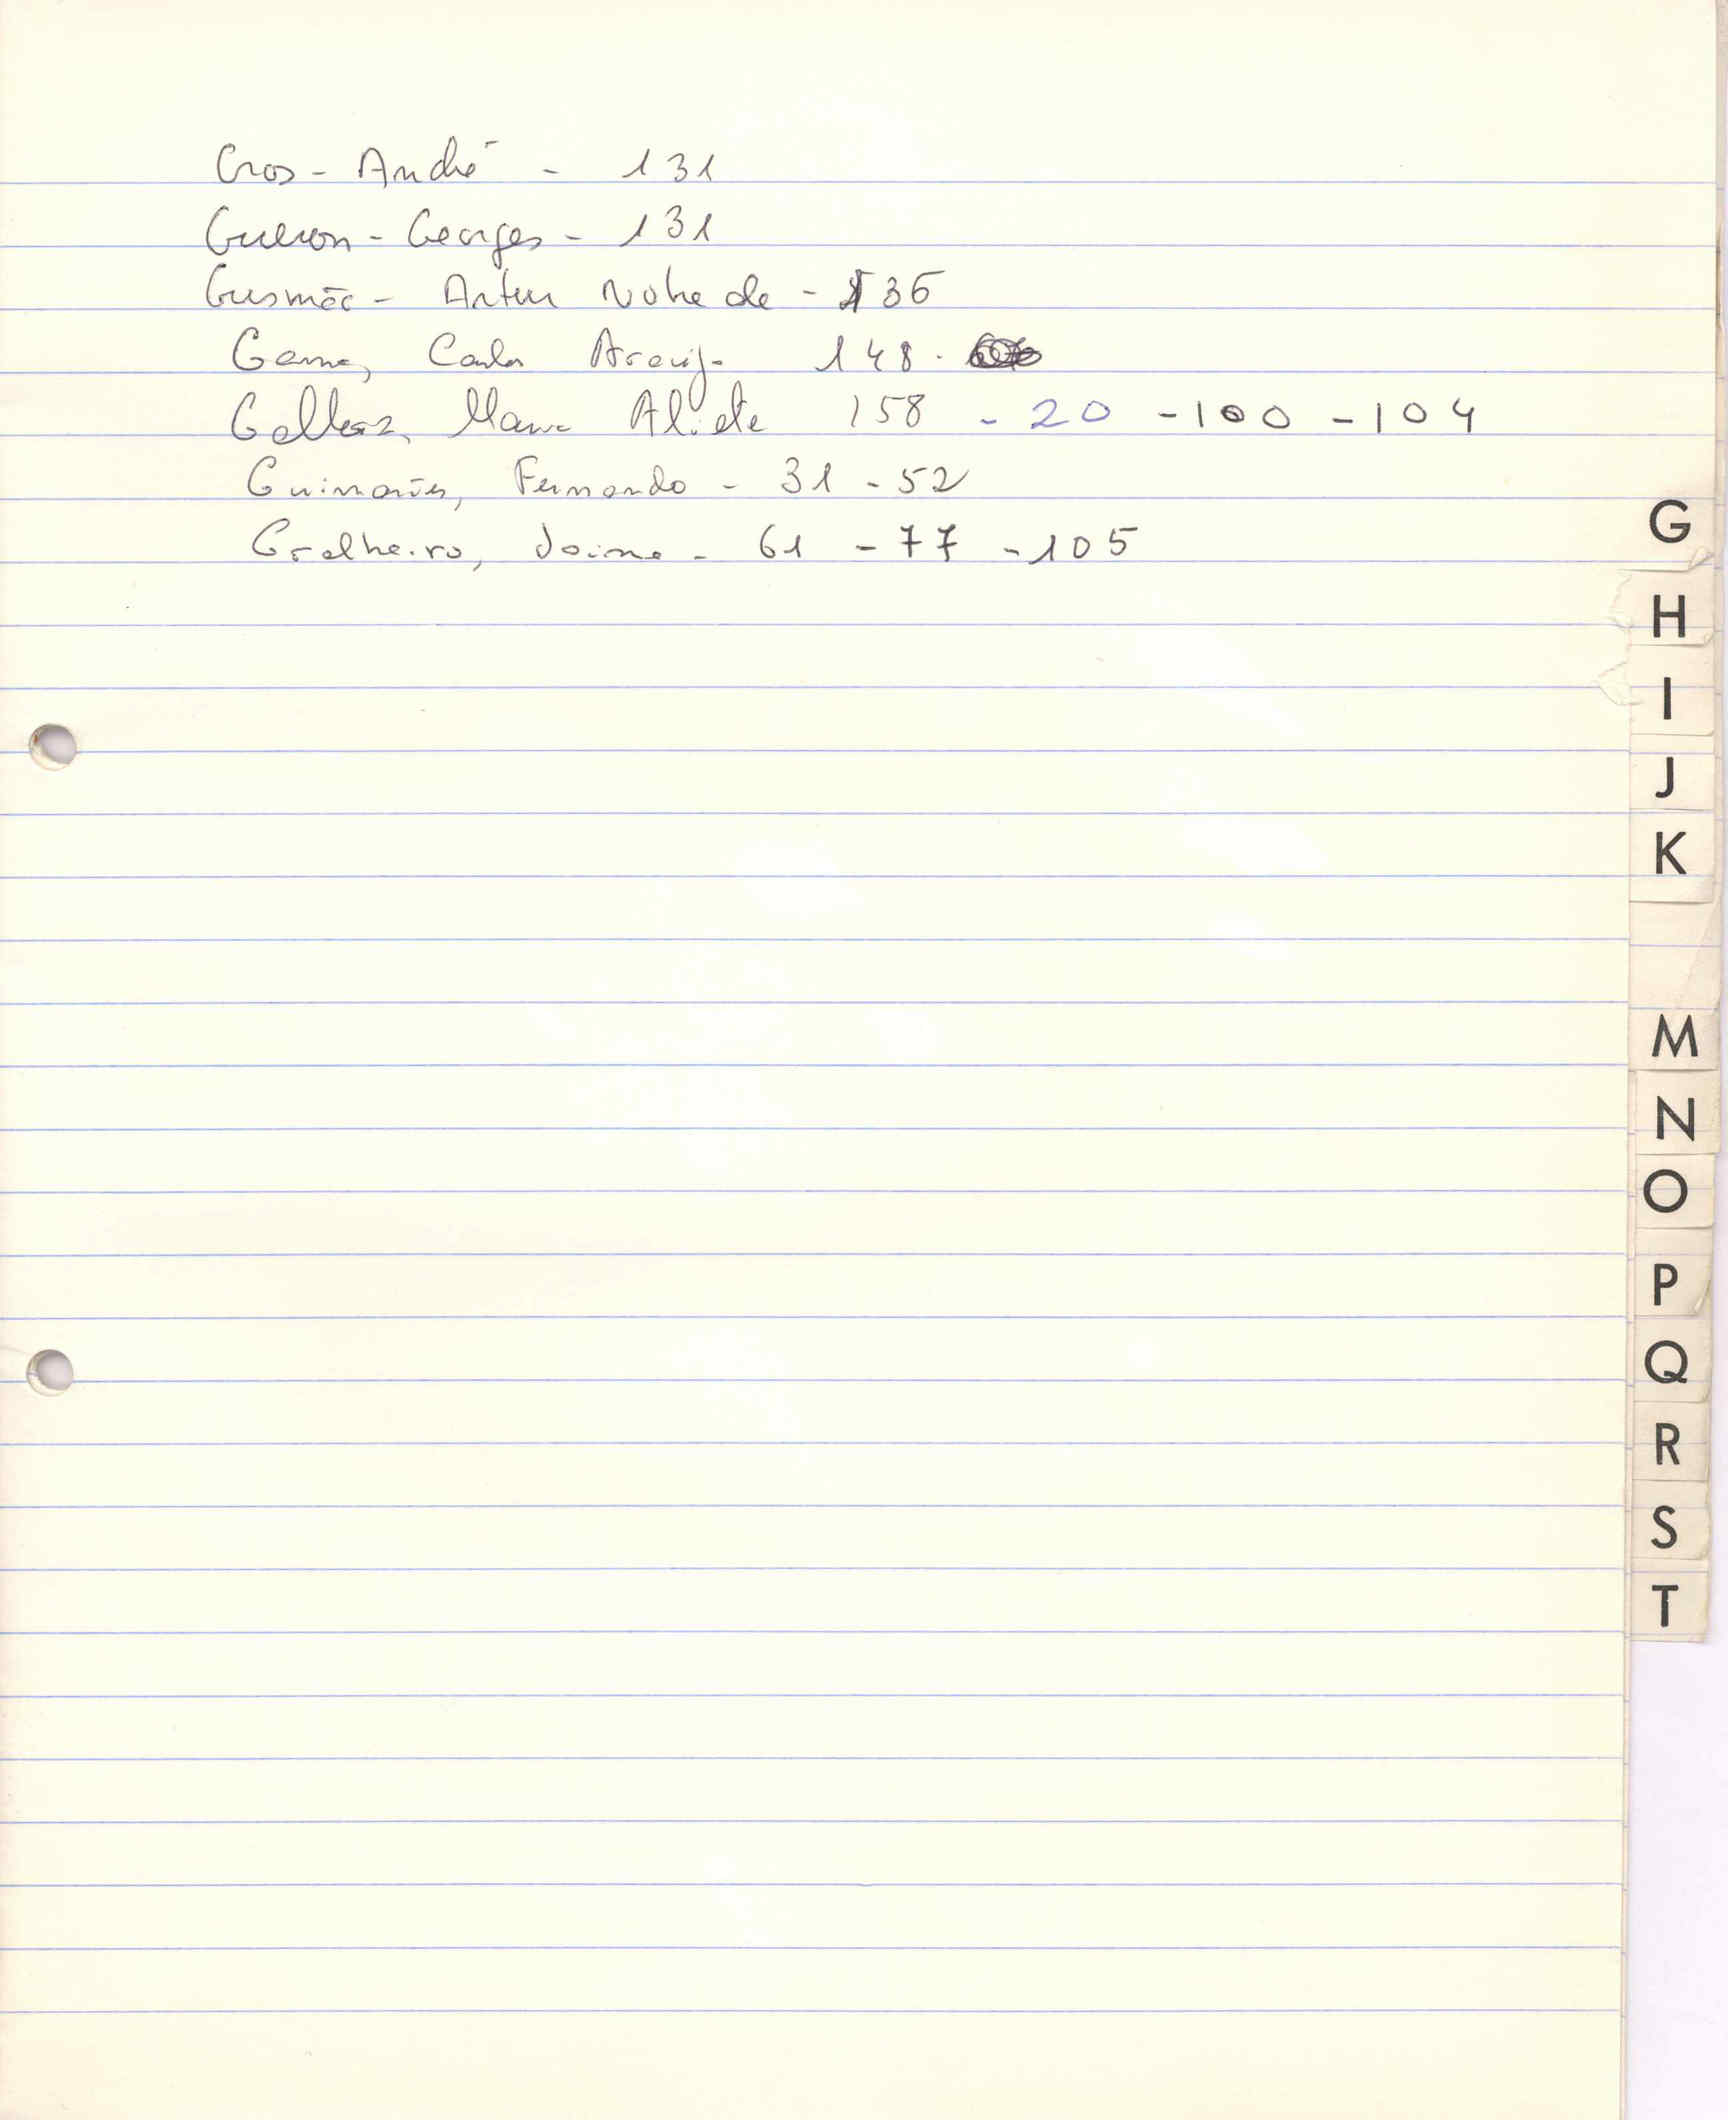 Gros - André - 131
Gueron - Georges - 131
Gusmão - Artur Nobre de - 136
Gama, Carlos Araujo 148 -
Galhoz, Maria Aliete 158 - 20 - 100 - 104
Guimarães, Fernando - 31 - 52
Gralheiro, Jaime - 61 - 77 - 105
G
H
I
J
K
M
N
O
P
Q
R
S
T